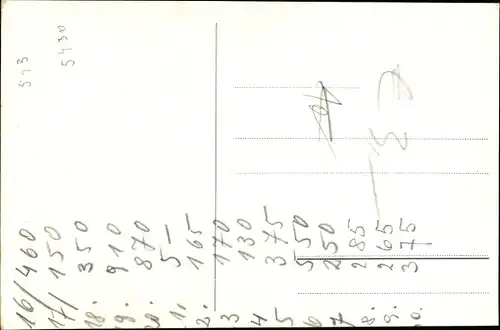 16/460
17/150
18. 350
19. 910
20. 870
1, 5–
2. 165
3 170
4 130
5 375
6 550
7 250
8. 285
9. 265
0. 375
513
5430